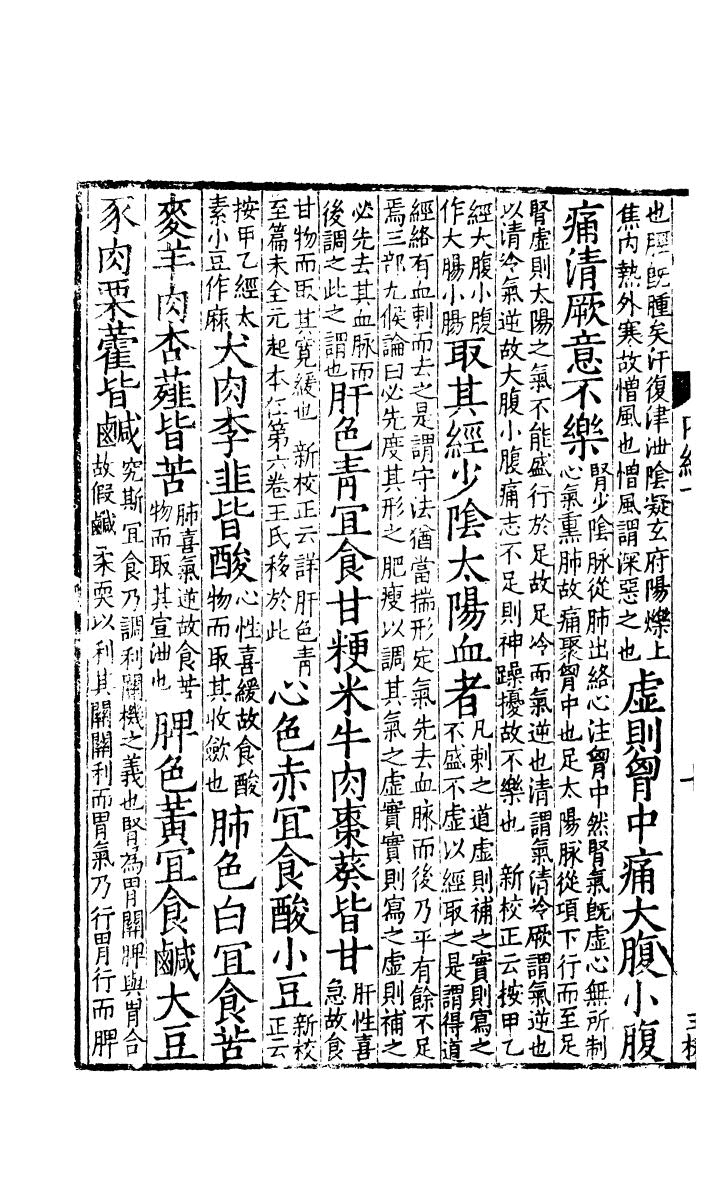 也脛既腫矣汗復津泄陰凝玄府陽爍上
焦内熱外寒故憎風也憎風謂深惡之也
虚則胷中痛大腹小腹
痛清厥意不樂
腎少陰脉從肺出絡心注胷中然腎氣既虚心無所制
心氣熏肺故痛聚胷中也足太陽脉從項下行而至足
腎虚則太陽之氣不能盛行於足故足冷而氣逆也清謂氣清冷厥謂氣逆也
以清冷氣逆故大腹小腹痛志不足則神躁擾故不樂也 新校正云按甲乙
經大腹小腹
作大腸小腸
取其經少陰太陽血者
凡刺之道虚則補之實則寫之
不盛不虚以經取之是謂得道
經絡有血刺而去之是謂守法猶當揣形定氣先去血脉而後乃平有餘不足
焉三部九候論曰必先度其形之肥瘦以調其氣之虚實實則寫之虚則補之
必先去其血脉而
後調之此之謂也
肝色青宜食甘粳米牛肉棗葵皆甘
肝性喜
急故食
甘物而取其寛緩也 新校正云詳肝色青
至篇末全元起本在第六卷王氏移於此
心色赤宜食酸小豆
新校
正云
按甲乙經太
素小豆作麻
犬肉李韭皆酸
心性喜緩故食酸
物而取其收斂也
肺色白宜食苦
麥羊肉杏薤皆苦
肺喜氣逆故食苦
物而取其宣泄也
脾色黃宜食鹹大豆
豕肉栗藿皆鹹
究斯宜食乃調利關機之義也腎為胃關脾與胃合
故假鹹柔耎以利其關關利而胃氣乃行胃行而脾